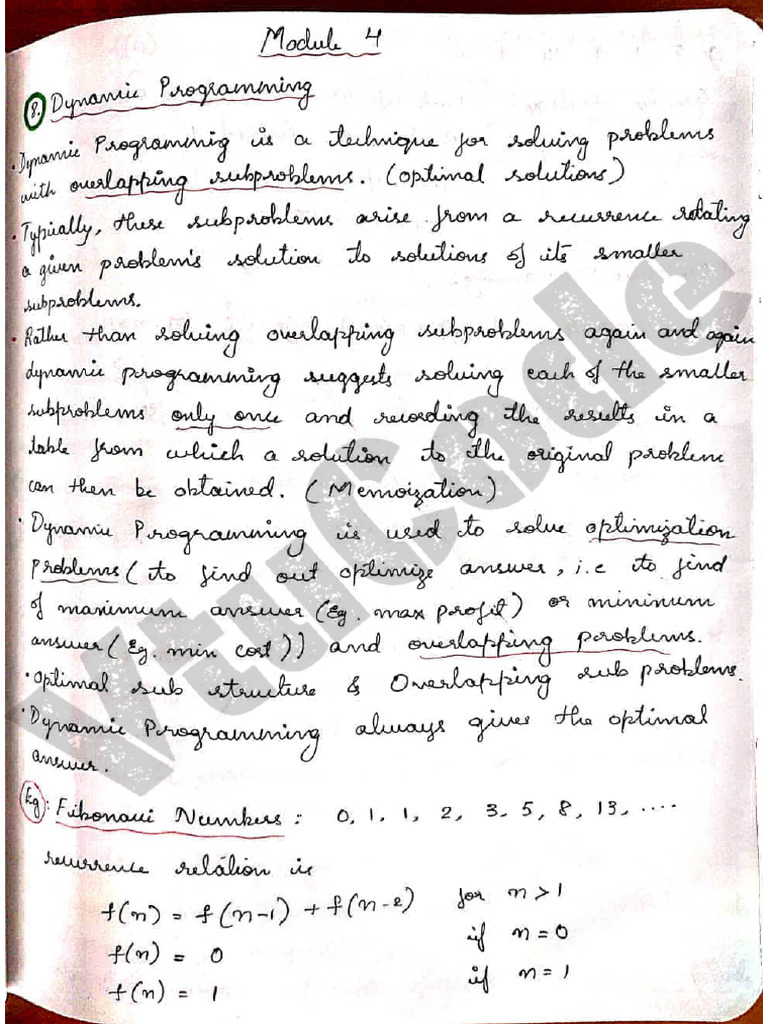 Module 4
8. Dynamic Programming
• Dynamic Programmig is a technique for solving problems
with overlapping subproblems. (optimal solutions)
• Typically, these subproblems arise from a recurrence rotating
a given problem's solution to solutions of its smaller
subproblems.
• Rather than solving overlapping subproblems again and again
dynamic programming suggests solving each of the smaller
subproblems only once and recording the results in a
table from which a solution to the original problem
can then be obtained. (Memoization)
• Dynamic Programming is used to solve optimization
problems (to find out optimize answer, i.e to find
of maximum answer (Eg. max profit) or mininum
answer (Eg. min cost)) and overlapping problems.
• optimal sub structure & Overlapping sub problems.
• Dynamic Programming always gives the optimal
answer.
Eg: Fibonacci Numbers: 0, 1, 1, 2, 3, 5, 8, 13, ....
recurrence relation is
f(n) = f(n-1) + f(n-2) for n > 1
f(n) = 0 if n = 0
f(n) = 1 if n = 1
VtuCode